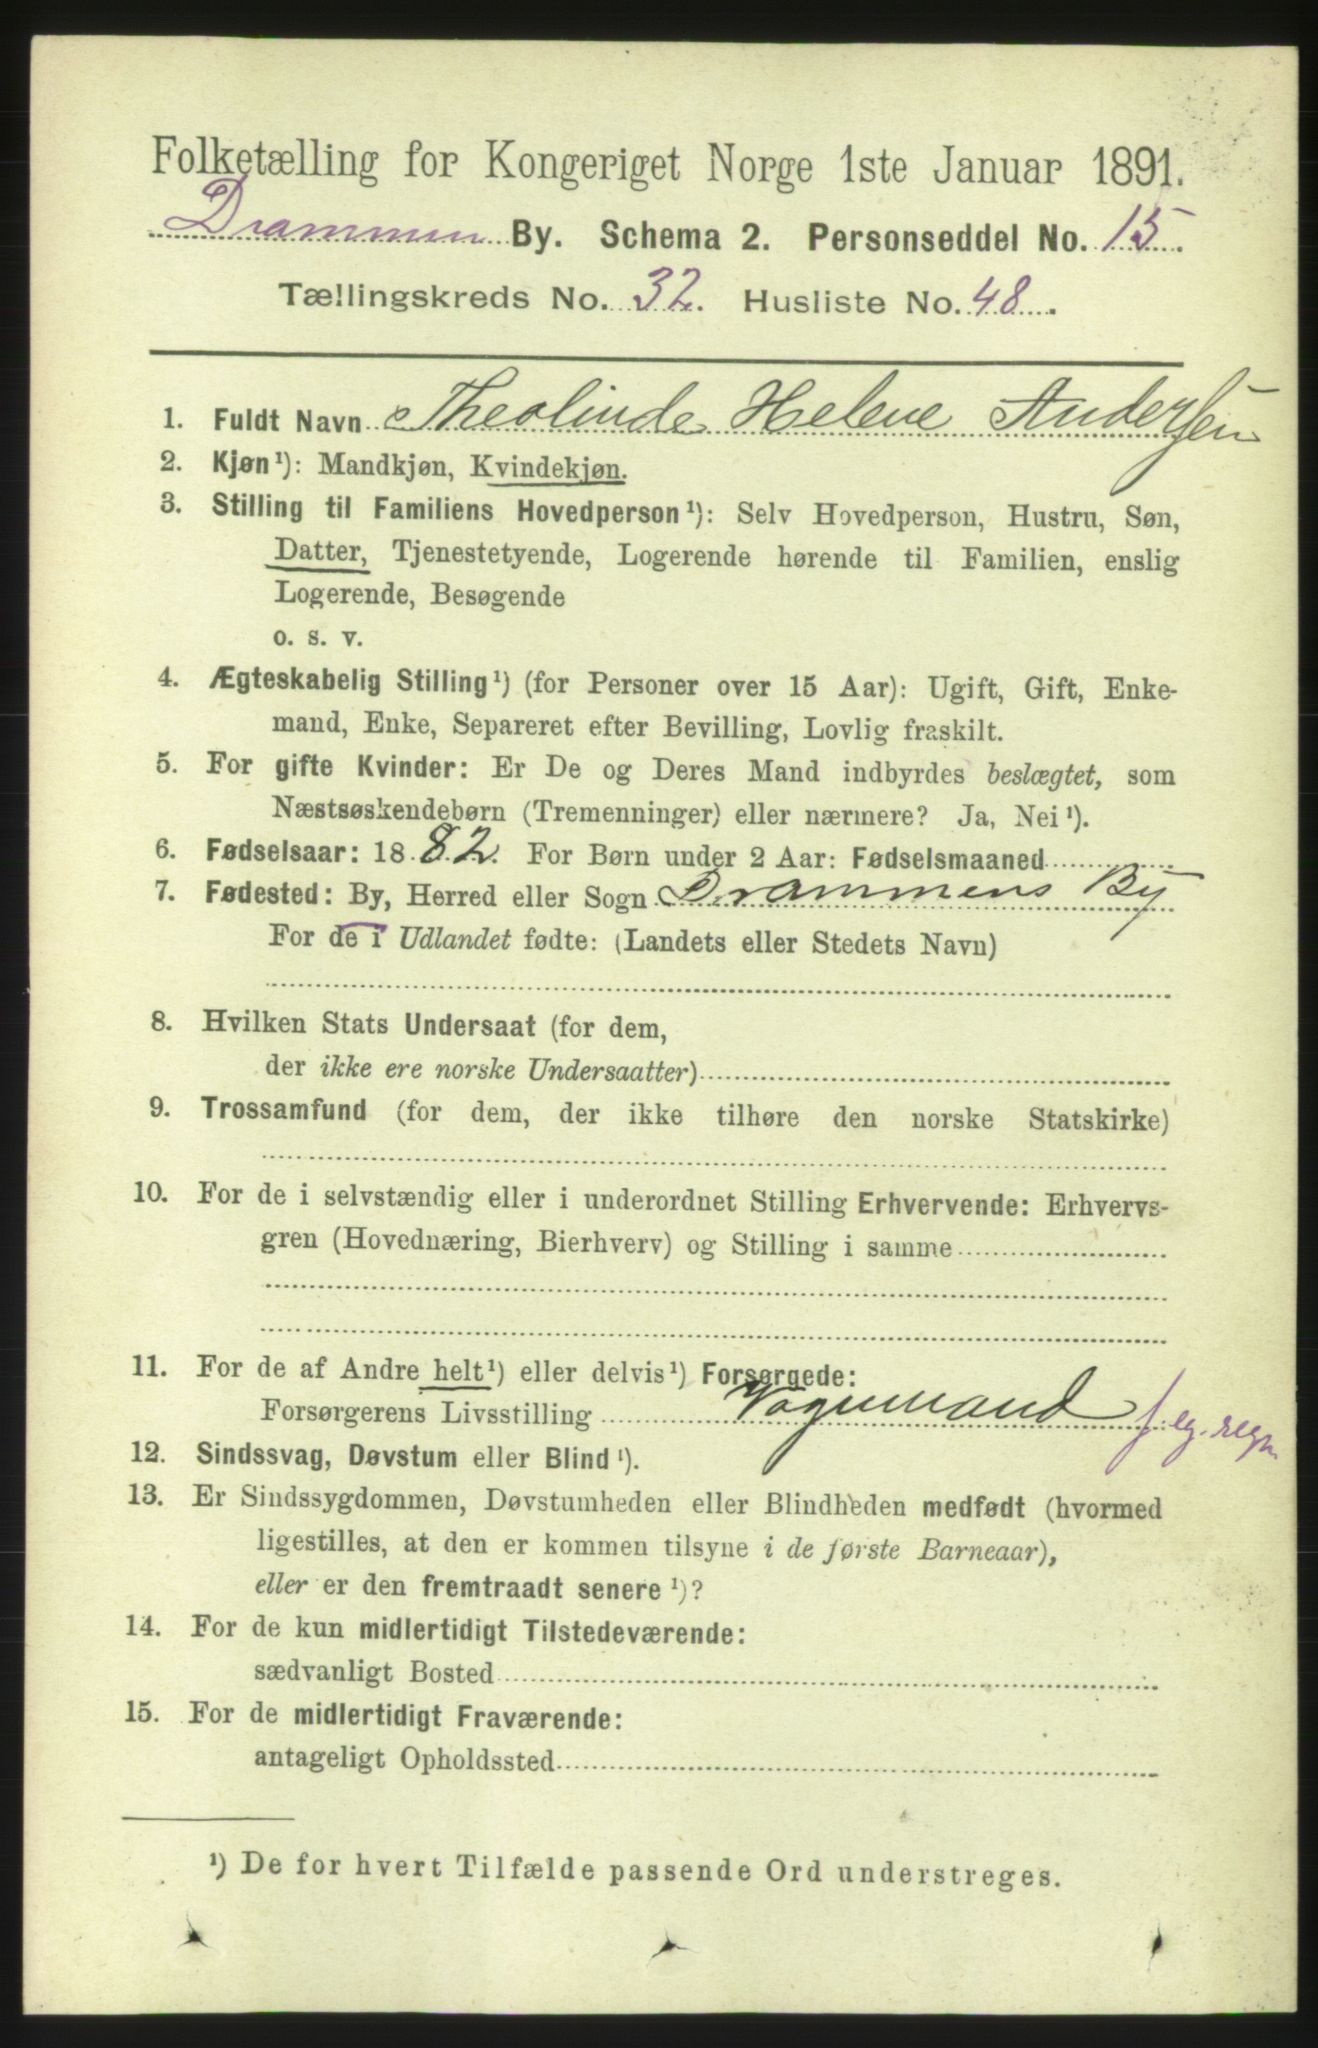 Folketælling for Kongeriget Norge 1ste Januar 1891.
Drammen By. Schema 2. Personseddel No. 15.
Tællingskreds No. 32. Husliste No. 48.
1. Fuldt Navn Theolinde Helene Andersen
2. Kjøn¹): Mandkjøn, Kvindekjøn.
3. Stilling til Familiens Hovedperson¹): Selv Hovedperson, Hustru, Søn,
Datter, Tjenestetyende, Logerende hørende til Familien, enslig
Logerende, Besøgende
o. s. v.
4. Ægteskabelig Stilling¹) (for Personer over 15 Aar): Ugift, Gift, Enke-
mand, Enke, Separeret efter Bevilling, Lovlig fraskilt.
5. For gifte Kvinder: Er De og Deres Mand indbyrdes beslægtet, som
Næstsøskendebørn (Tremenninger) eller nærmere? Ja, Nei¹).
6. Fødselsaar: 1882. For Børn under 2 Aar: Fødselsmaaned
7. Fødested: By, Herred eller Sogn Drammens By
For de i Udlandet fødte: (Landets eller Stedets Navn)
8. Hvilken Stats Undersaat (for dem,
der ikke ere norske Undersaatter)
9. Trossamfund (for dem, der ikke tilhøre den norske Statskirke)
10. For de i selvstændig eller i underordnet Stilling Erhvervende: Erhvervs-
gren (Hovednæring, Bierhverv) og Stilling i samme
11. For de af Andre helt¹) eller delvis¹) Forsørgede:
Forsørgerens Livsstilling Vognmand f. eg. regn.
12. Sindssvag, Døvstum eller Blind¹).
13. Er Sindssygdommen, Døvstumheden eller Blindheden medfødt (hvormed
ligestilles, at den er kommen tilsyne i de første Barneaar),
eller er den fremtraadt senere¹)?
14. For de kun midlertidigt Tilstedeværende:
sædvanligt Bosted
15. For de midlertidigt Fraværende:
antageligt Opholdssted
¹) De for hvert Tilfælde passende Ord understreges.